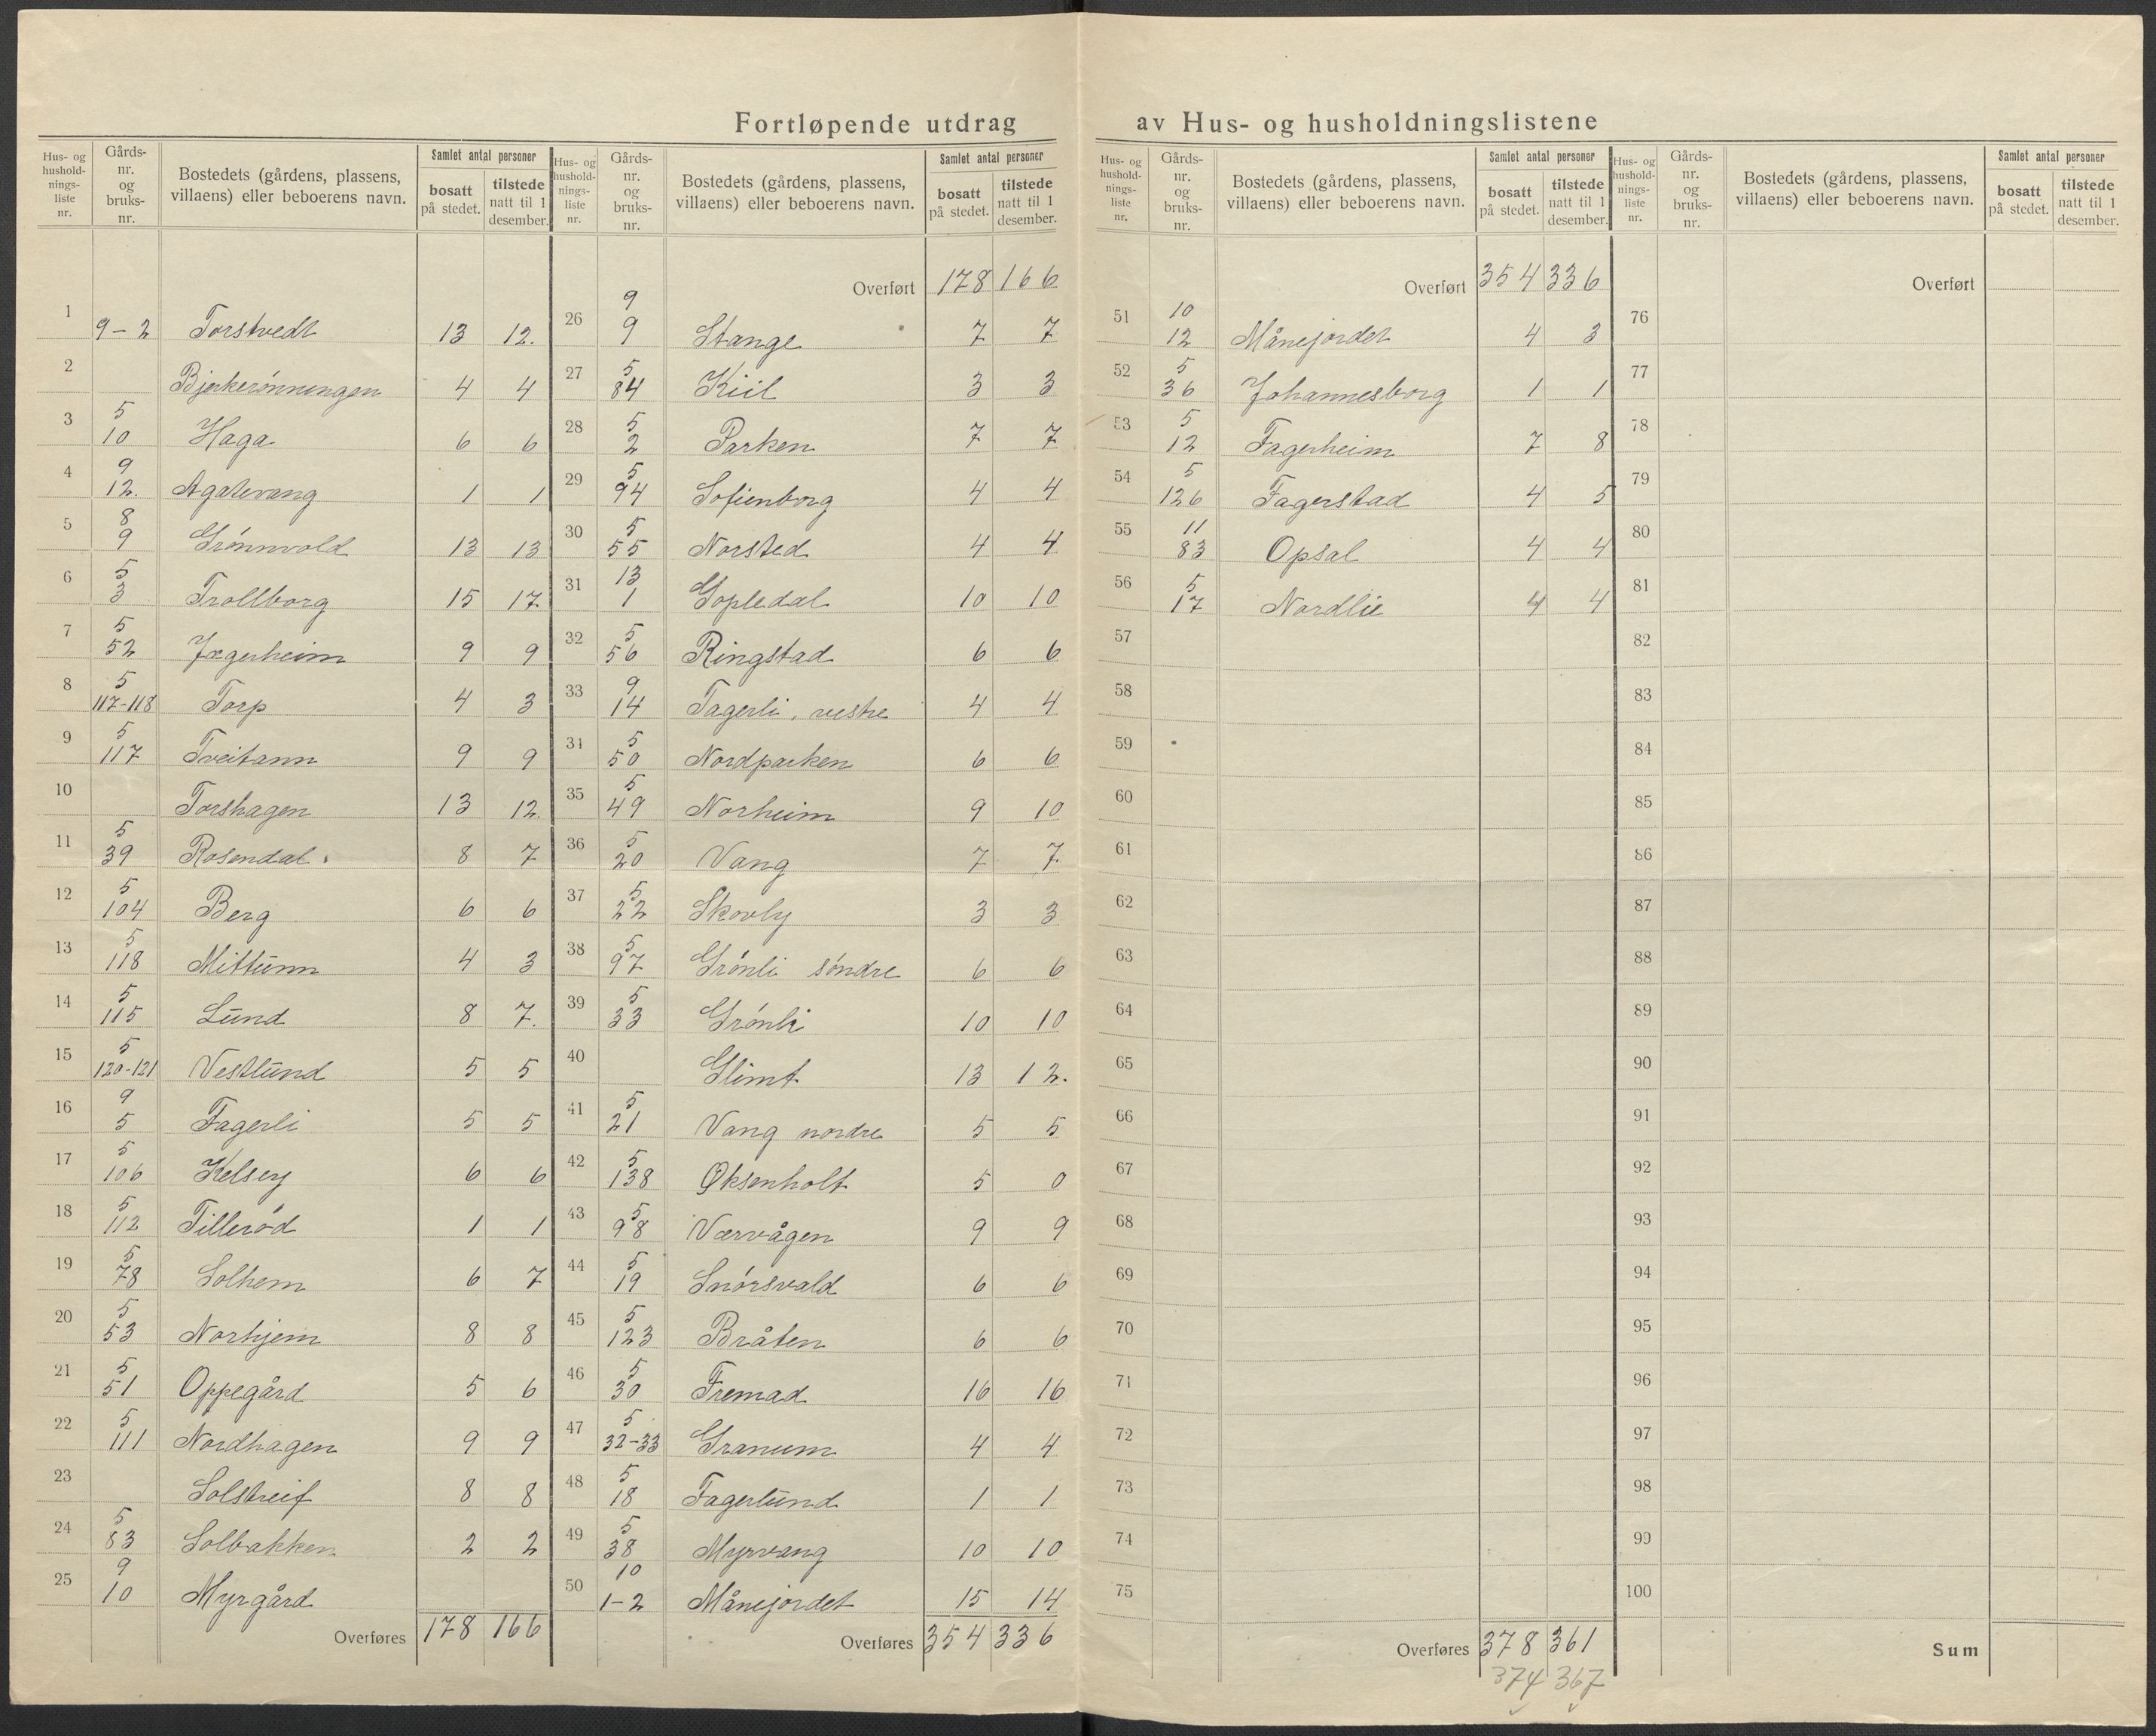 Fortløpende utdrag av Hus- og husholdningslistene
Hus- og hushold-nings-liste nr. Gårds-nr. og bruks-nr. Bostedets (gårdens, plassens, villaens) eller beboerens navn. Samlet antal personer bosatt på stedet. tilstede natt til 1 desember.
1 9-2 Torstvedt 13 12.
2 Bjerkerønningen 4 4
3 5 10 Haga 6 6
4 9 12. Agatevang 1 1
5 8 9 Grønnvold 13 13
6 5 3 Trollborg 15 17
7 5 52 Jægerheim 9 9
8 5 117-118 Torp 4 3
9 5 117 Tveitann 9 9
10 Torshagen 13 12.
11 5 39 Rosendal 8 7
12 5 104 Berg 6 6
13 5 118 Mittunn 4 3
14 5 115 Lund 8 7.
15 5 120-121 Vestlund 5 5
16 9 5 Fagerli 5 5
17 5 106 Kelsey 6 6
18 5 112 Tillerød 1 1
19 5 78 Solhem 6 7
20 5 53 Norhjem 8 8
21 5 51 Oppegård 5 6
22 5 111 Nordhagen 9 9
23 Solstreif 8 8
24 5 83 Solbakken 2 2
25 9 10 Myrgård
Overføres 178 166
Hus- og hushold-nings-liste nr. Gårds-nr. og bruks-nr. Bostedets (gårdens, plassens, villaens) eller beboerens navn. Samlet antal personer bosatt på stedet. tilstede natt til 1 desember.
Overført 178 166
26 9 9 Stange 7 7
27 5 84 Kiil 3 3
28 5 2 Parken 7 7
29 5 94 Sofienborg 4 4
30 5 55 Norsted 4 4
31 13 1 Gopledal 10 10
32 5 56 Ringstad 6 6
33 9 14 Fagerli, vestre 4 4
34 5 50 Nordparken 6 6
35 5 49 Norheim 9 10
36 5 20 Vang 7 7.
37 5 22 Skovly 3 3
38 5 97 Grønli søndre 6 6
39 5 33 Grønli 10 10
40 Glimt 13 12.
41 5 21 Vang nordre 5 5
42 5 138 Øksenholt 5 0
43 5 98 Værvågen 9 9
44 5 19 Snørsvald 6 6
45 5 123 Bråten 6 6
46 5 30 Fremad 16 16
47 5 32-33 Granum 4 4
48 5 18 Fagerlund 1 1
49 5 38 Myrvang 10 10
50 10 1-2 Månejordet 15 14
Overføres 354 336
Hus- og hushold-nings-liste nr. Gårds-nr. og bruks-nr. Bostedets (gårdens, plassens, villaens) eller beboerens navn. Samlet antal personer bosatt på stedet. tilstede natt til 1 desember.
Overført 354 336
51 10 12 Månejordet 4 3
52 5 36 Johannesborg 1 1
53 5 12 Fagerheim 7 8
54 5 126 Fagerstad 4 5
55 11 83 Opsal 4 4
56 5 17 Nordlie 4 4
57
58
59
60
61
62
63
64
65
66
67
68
69
70
71
72
73
74
75
Overføres 378 361
374 367
Hus- og hushold-nings-liste nr. Gårds-nr. og bruks-nr. Bostedets (gårdens, plassens, villaens) eller beboerens navn. Samlet antal personer bosatt på stedet. tilstede natt til 1 desember.
Overført
76
77
78
79
80
81
82
83
84
85
86
87
88
89
90
91
92
93
94
95
96
97
98
99
100
Sum